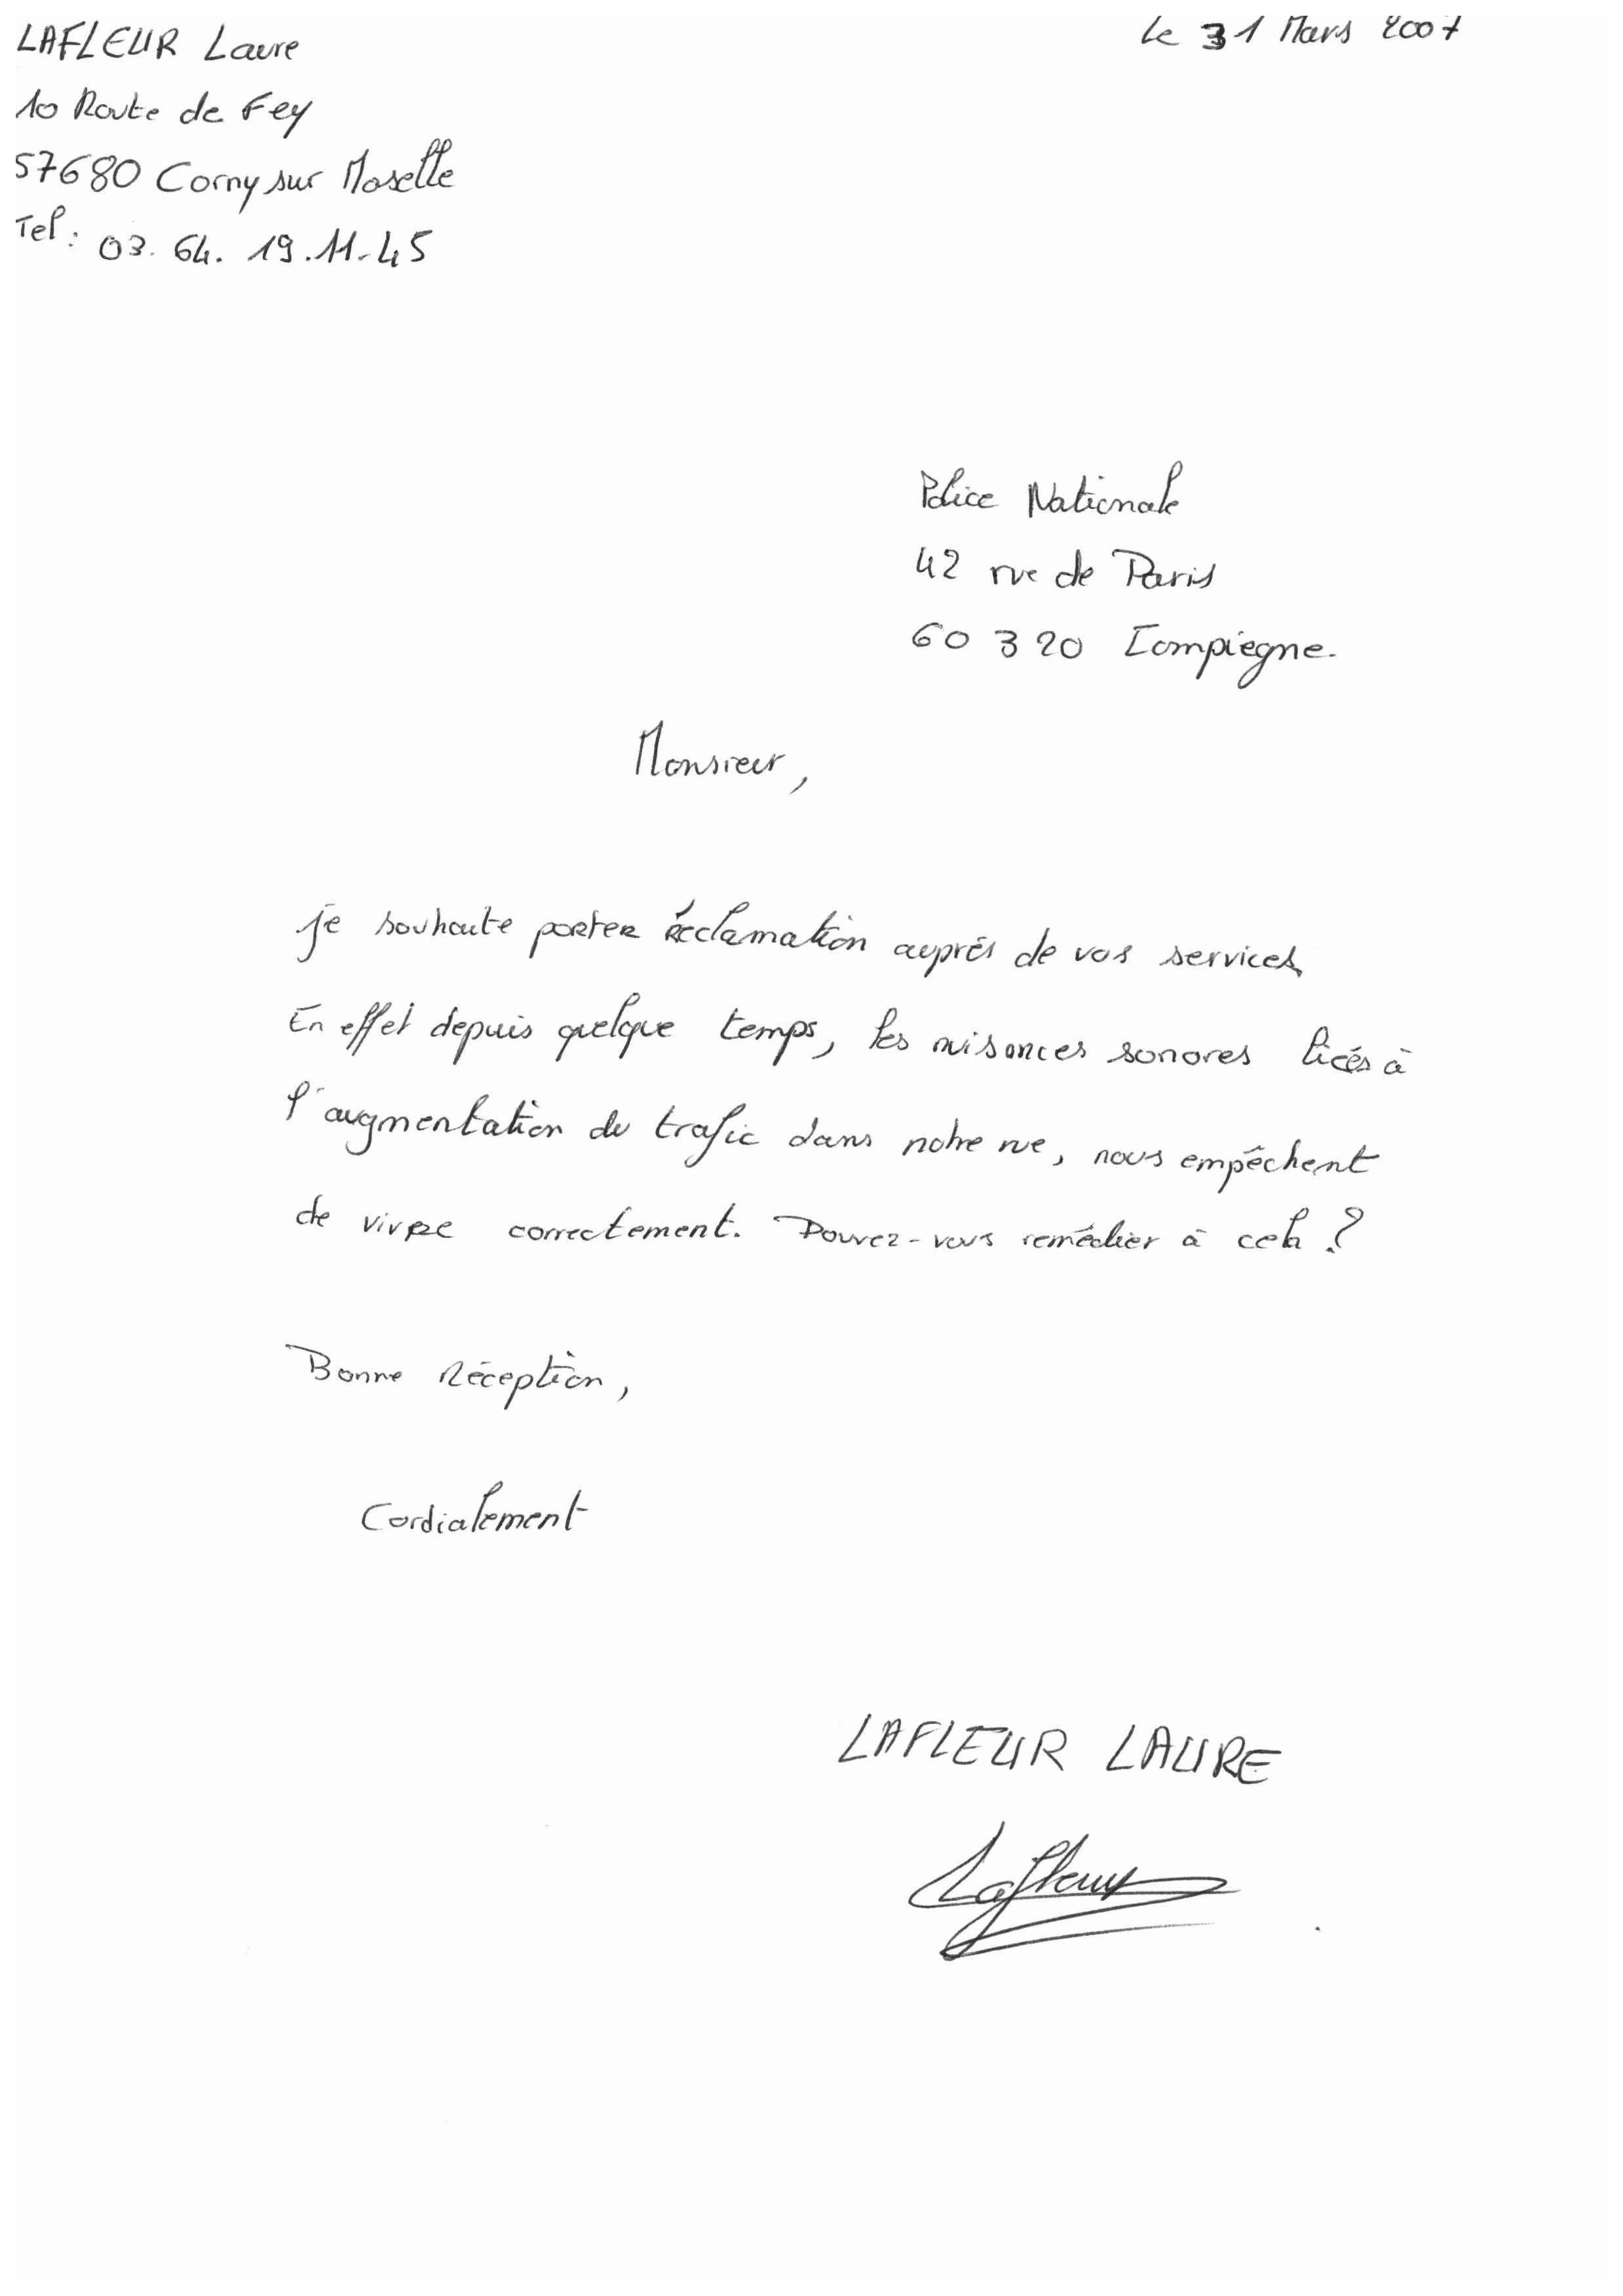 LAFLEUR Laure
Le 31 Mars 2007
10 Route de Fey
57680 Corny sur Moselle
Tel : 03. 64. 19.11.45
Police Nationale
42 rue de Paris
60 320 Compiegne.
Monsieur,
je souhaite porter réclamation auprès de vos services
En effet depuis quelque temps, les nuisances sonores liées à
l'augmentation du trafic dans notre rue, nous empêchent
de vivre correctement. Pouvez-vous remédier à cela ?
Bonne Réception,
Cordialement
LAFLEUR LAURE
Lafleur